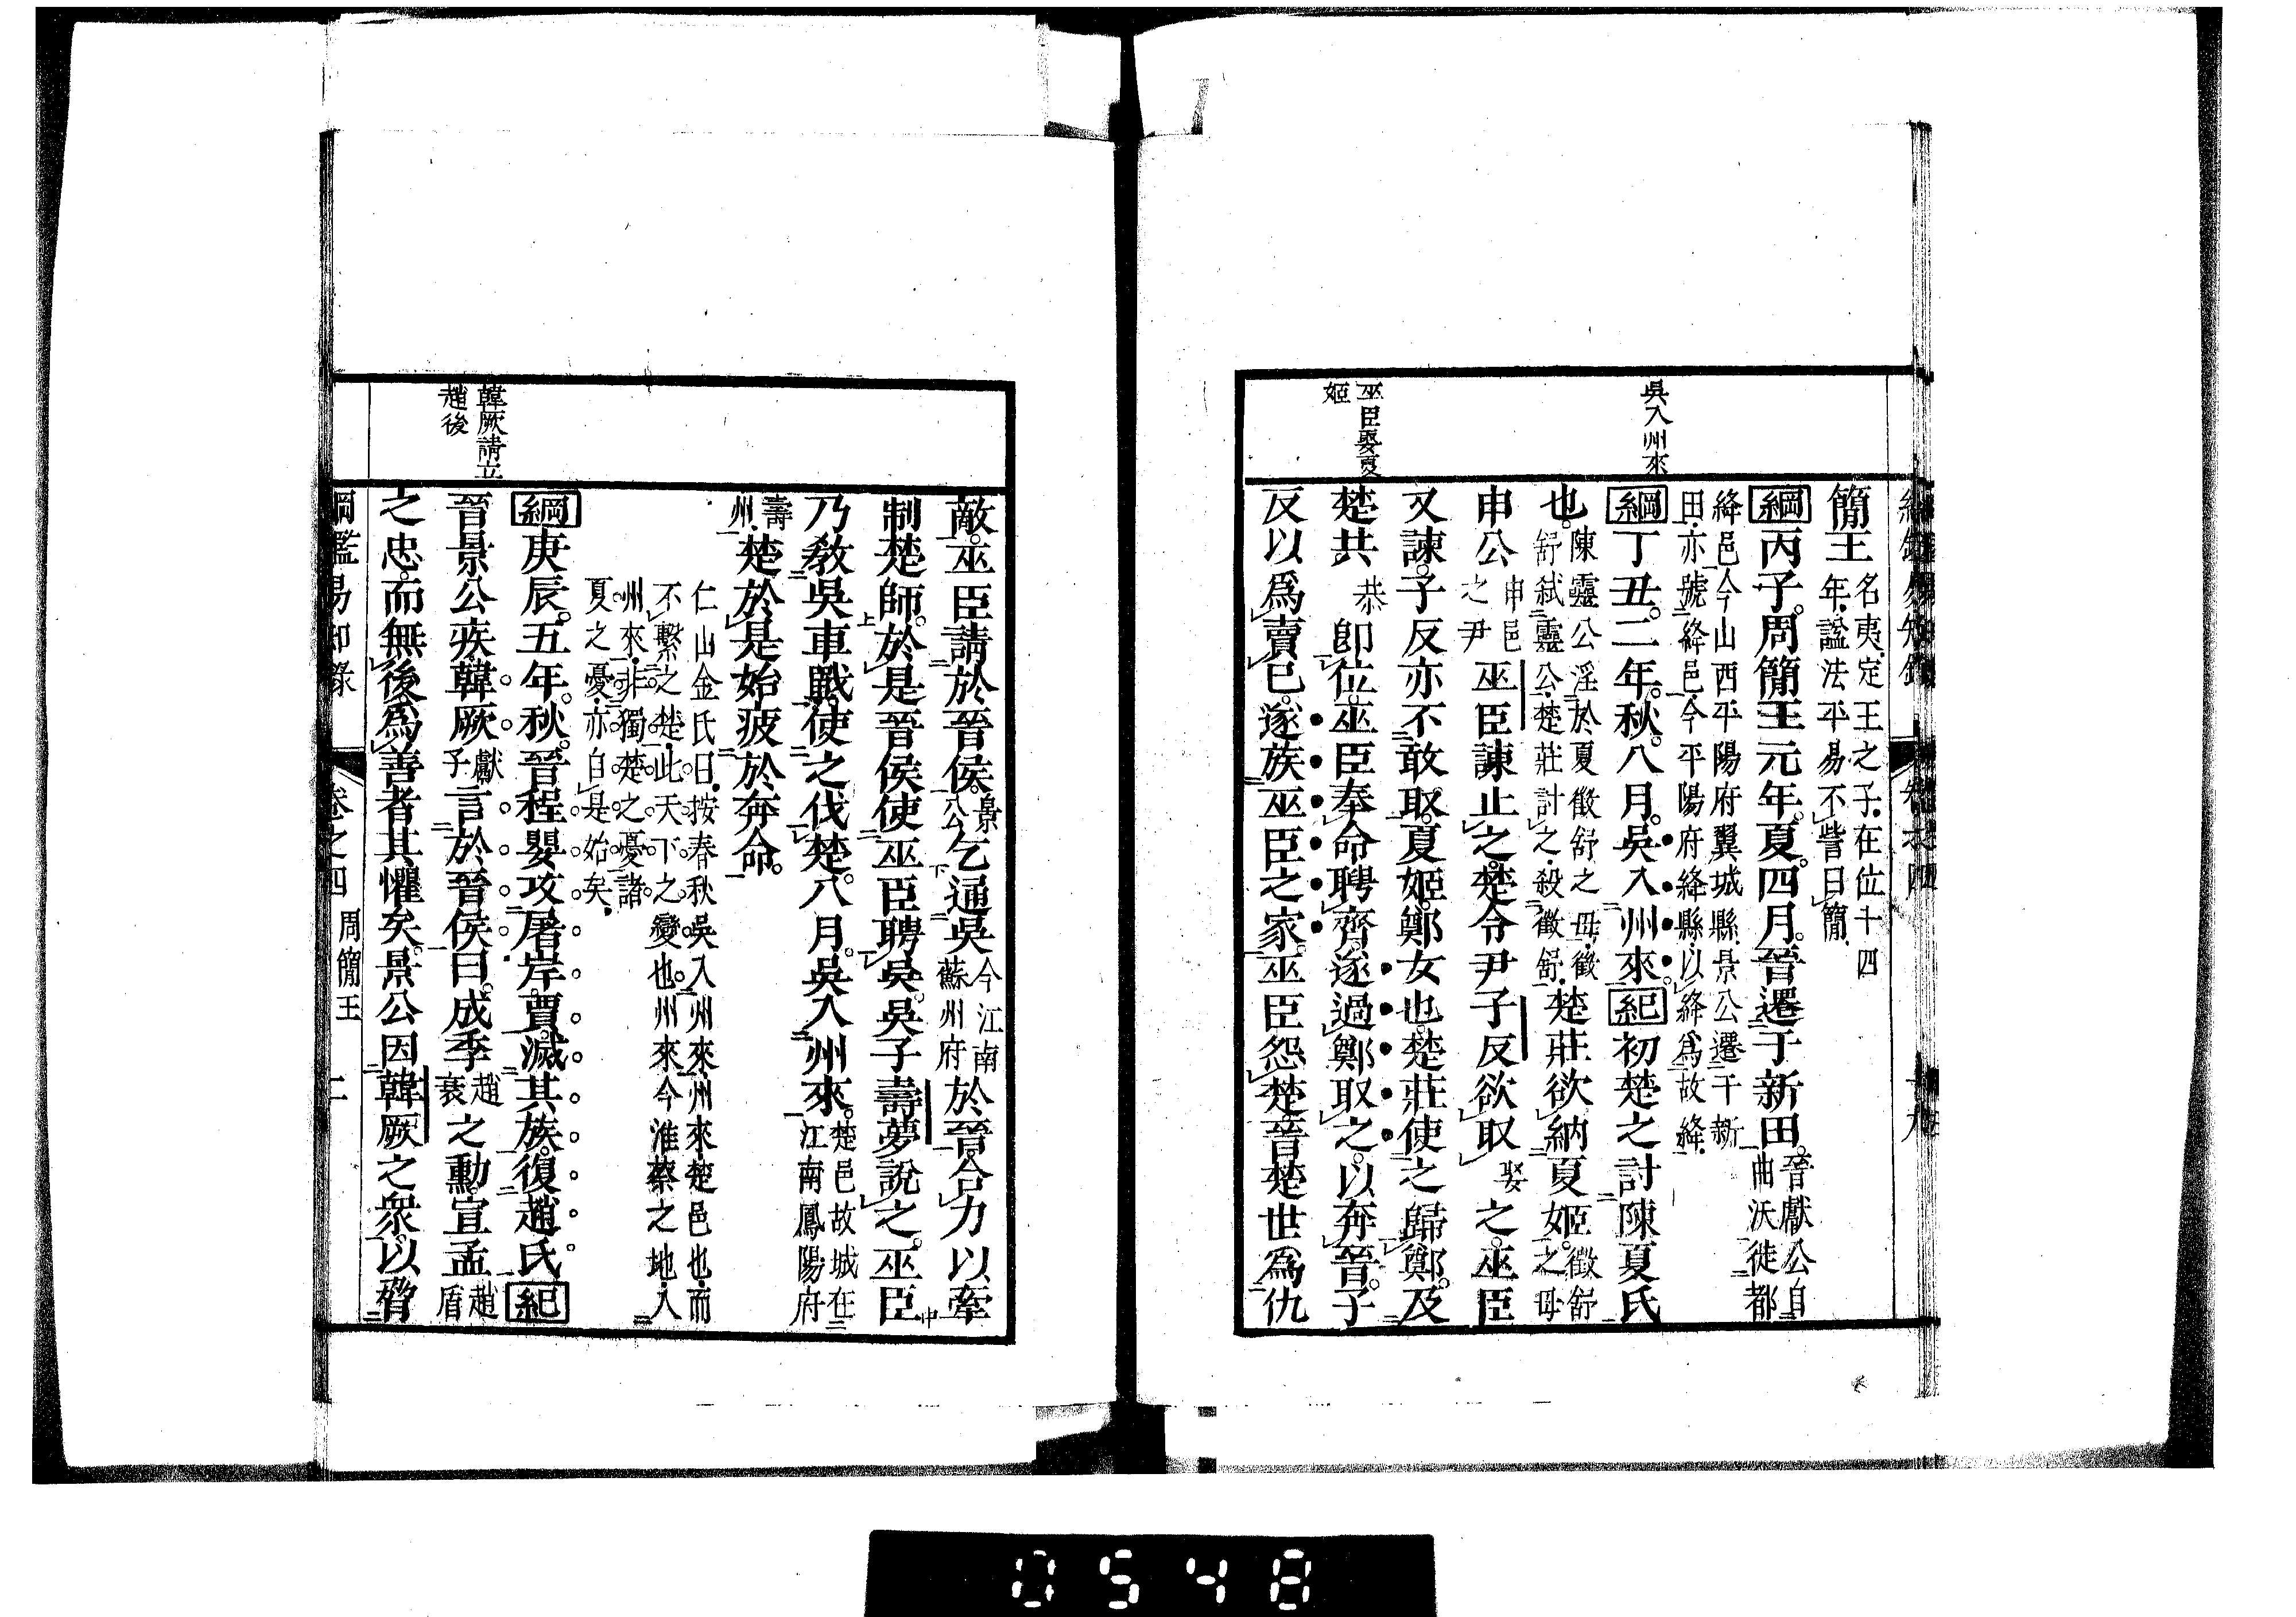 吳入州來
巫臣娶夏
姬
簡王名夷定王之子在位十四
年謚法平易不訾曰簡
綱丙子周簡王元年夏四月晉遷于新田晉獻公自
曲沃徙都
絳邑今山西平陽府翼城縣景公遷于新
田亦號絳邑今平陽府絳縣以絳爲故絳
綱丁丑二年秋八月吳入州來紀初楚之討陳夏氏
也陳靈公淫於夏徵舒之母徵
舒弒靈公楚莊討之殺徵舒楚莊欲納夏姬徵舒
之母
申公申邑
之尹巫臣諫止之楚令尹子反欲取娶之巫臣
又諫子反亦不敢取夏姬鄭女也楚莊使之歸鄭及
楚共恭卽位巫臣奉命聘齊遂過鄭取之以奔晉子
反以爲賣已遂族巫臣之家巫臣怨楚晉楚世爲仇
韓厥請立
趙後
敵巫臣請於晉侯景
公乞通吳今江南
蘇州府於晉合力以牽
制楚師於是晉侯使巫臣聘吳吳子壽夢說之巫臣
乃敎吳車戰使之伐楚八月吳入州來楚邑故城在
江南鳳陽府
壽
州楚於是始疲於奔命
仁山金氏曰按春秋吳入州來州來楚邑也而
不繫之楚此天下之變也州來今淮蔡之地入
州來非獨楚之憂諸
夏之憂亦自是始矣
綱庚辰五年秋晉程嬰攻屠岸賈滅其族復趙氏紀
晉景公疾韓厥獻
子言於晉侯曰成季趙
衰之勳宣孟趙
盾
之忠而無後爲善者其懼矣景公因韓厥之衆以脅
綱鑑易知錄 卷之四 周簡王 二
0548